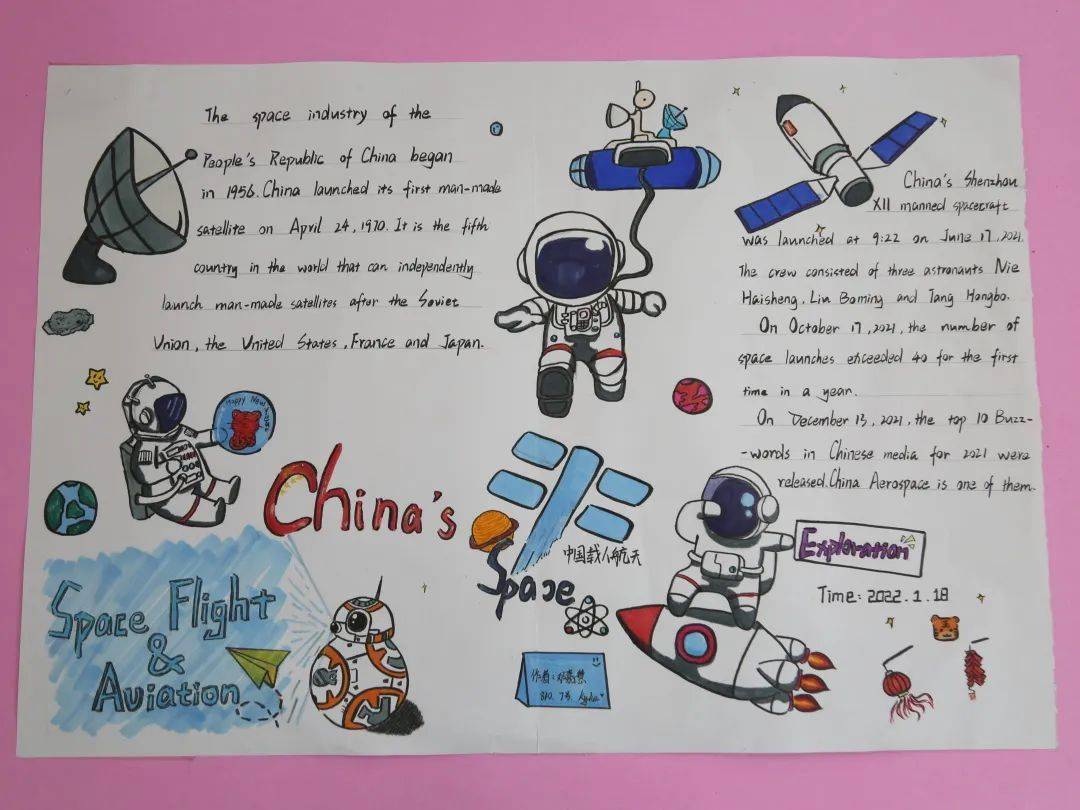 The space industry of the
People's Republic of China began
in 1956. China launched its first man-made
satellite on April 24, 1970. It is the fifth
country in the world that can independently
launch man-made satellites after the Soviet
Union, the United States, France and Japan.
China's Shenzhou
XII manned spacecraft
was launched at 9:22 on June 17, 2021.
The crew consisted of three astronauts Nie
Haisheng, Liu Boming and Tang Hongbo.
On October 17, 2021, the number of
space launches exceeded 40 for the first
time in a year.
On December 13, 2021, the top 10 Buzz-
-words in Chinese media for 2021 were
released. China Aerospace is one of them.
Happy New
China's
Space
中国载人航天
Exploration
Time: 2022.1.18
Space Flight
&
Aviation
作者: